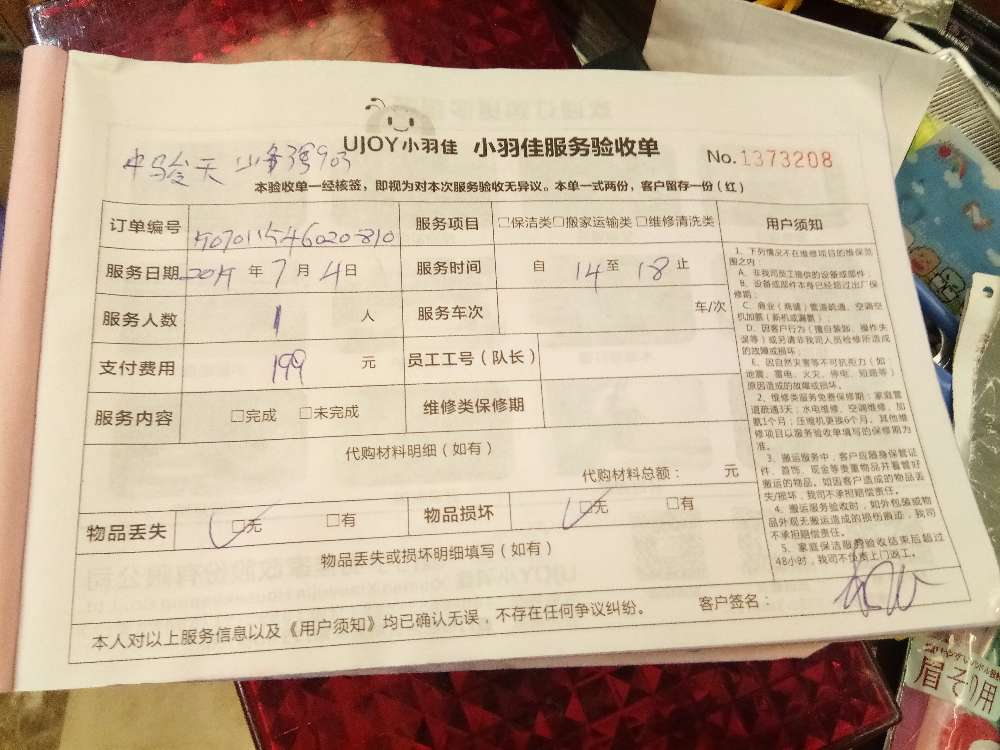 UJOY小羽佳 小羽佳服务验收单
No.1373208
本验收单一经核签，即视为对本次服务验收无异议。本单一式两份，客户留存一份（红）
订单编号 服务项目 □保洁类□搬家运输类□维修清洗类 用户须知
服务日期 年 7 月 4 日 服务时间 自 14 至 18 止
服务人数 1 人 服务车次 车/次
支付费用 199 元 员工工号（队长）
服务内容 □完成 □未完成 维修类保修期
代购材料明细（如有）
代购材料总额： 元
物品丢失 □无 □有 物品损坏 □无 □有
物品丢失或损坏明细填写（如有）
本人对以上服务信息以及《用户须知》均已确认无误，不存在任何争议纠纷。 客户签名：
1、下列情况不在维修项目的维保范
围之内：
A、非我司员工提供的设备或部件；
B、设备或部件本身已经超过出厂保
修期；
C、商业（商铺）管道疏通、空调空
机加氟（新机或漏氟）；
D、因客户行为（擅自装卸、操作失
误等）或另请非我司人员检修所造成
的故障或损坏；
E、因自然灾害等不可抗拒力（如：
地震、雷电、火灾、停电、短路等）
原因造成的故障或损坏。
2、维修类服务免费保修期：家庭管
道疏通3天；水电维修、空调维修、加
氟1个月；压缩机更换6个月。其他维
修项目以服务验收单填写的保修期为
准。
3、搬运服务中，客户应随身保管证
件、首饰、现金等贵重物品并看管好
搬运的物品。如因客户造成的物品丢
失/损坏，我司不承担赔偿责任。
4、搬运服务验收时，如外包装或物
品外观无搬运造成的损伤痕迹，我司
不承担赔偿责任。
5、家庭保洁服务验收结束后超过
48小时，我司不负责上门返工。
眉そり用